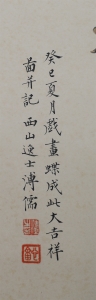 癸巳夏月戲畫蝶成此大吉祥
圖并記 西山逸士溥儒